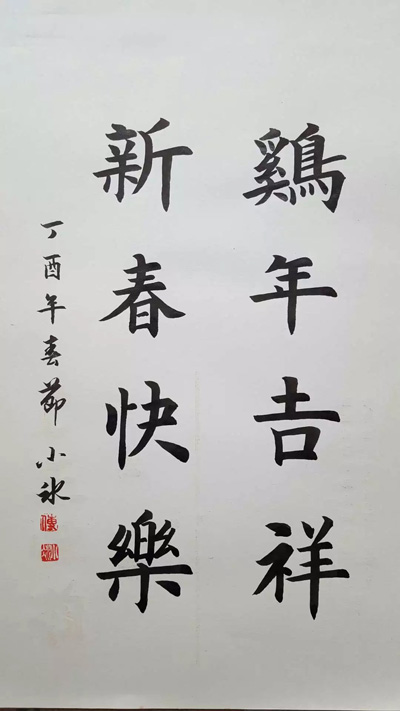 鷄年吉祥
新春快樂
丁酉年春節 小冰